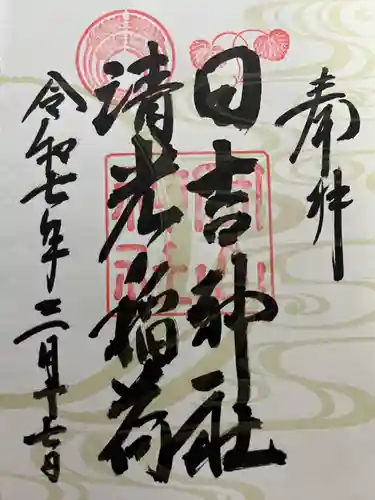 奉拝
日吉神社
清光稲荷
令和七年二月十七日